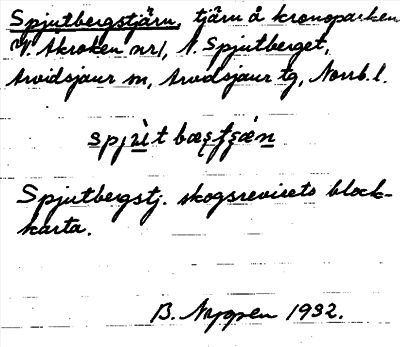 Spjutbergstjärn, tjärn å kronoparken
V. Akroken nr 1, N. Spjutberget,
Arvidsjaur sn, Arvidsjaur tg, Norrb. l.
Spjutbergstj. skogsrevisets block-
karta.
B. Nygren 1932.